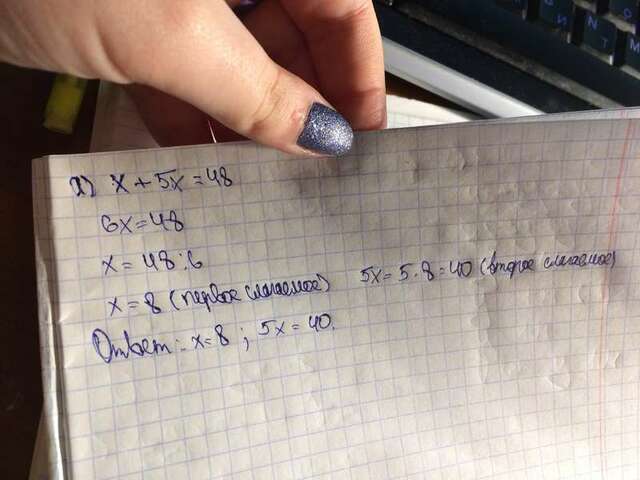 а) x + 5x = 48
6x = 48
x = 48 : 6
x = 8 (первое слагаемое) 5x = 5 · 8 = 40 (второе слагаемое)
Ответ: x = 8 ; 5x = 40.